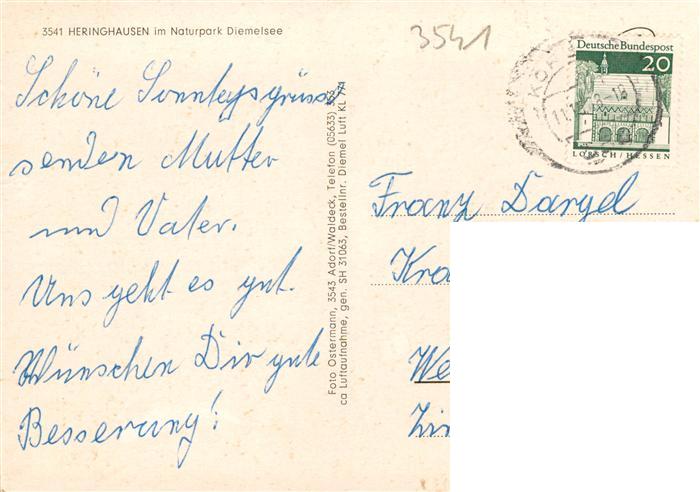 3541 HERINGHAUSEN im Naturpark Diemelsee
3541
Deutsche Bundespost
20
LORSCH/HESSEN
Schöne Sonntagsgrüsse
senden Mutter
und Vater.
Uns geht es gut.
Wünschen Dir gute
Besserung!
Foto Ostermann, 3543 Adorf/Waldeck, Telefon (05633)
ca Luftaufnahme, gen. SH 31063, Bestellnr. Diemel Luft KL 771
Franz Dargel
Kra
We